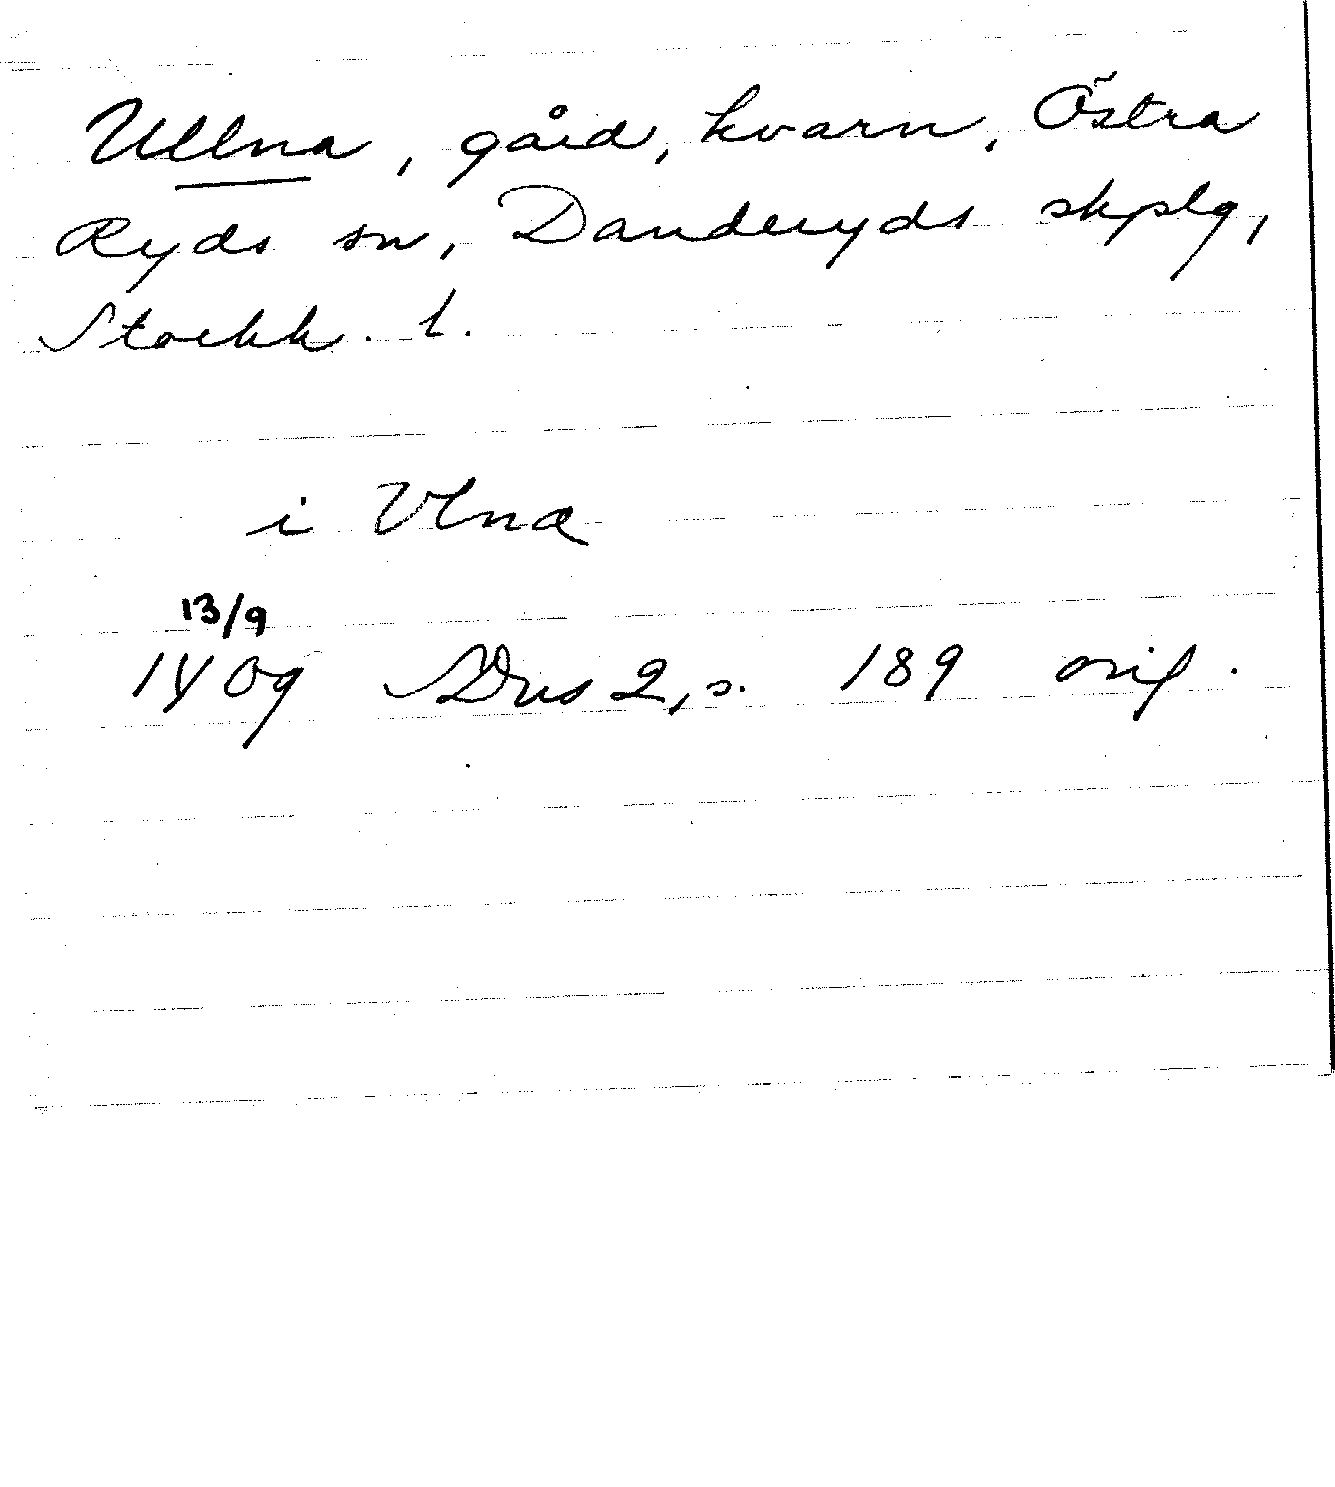 Ullna, gård, kvarn, Östra
Ryds sn, Danderyds skplg,
Stockh. l.
i Vlna
13/9
1409 SDns 2, s. 189 orig.